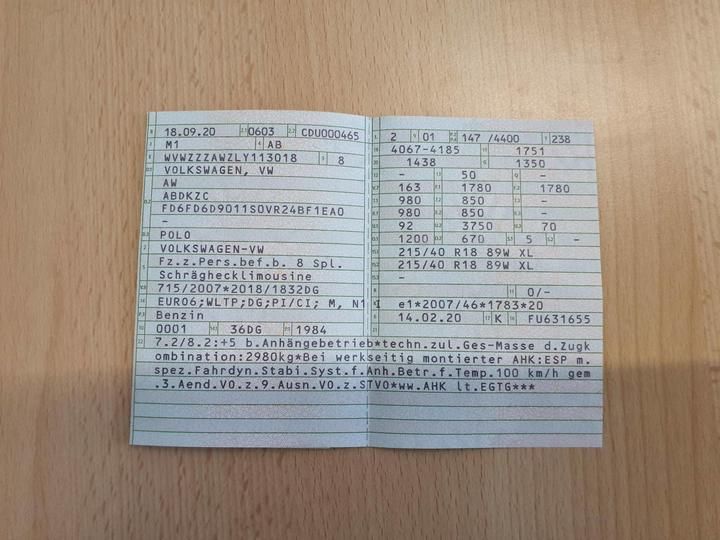 18.09.20 0603 CDU000465
M1 AB
WVWZZZAWZLY113018 8
VOLKSWAGEN, VW
AW
ABDKZC
FD6FD6D9011S0VR24BF1EA0
-
POLO
VOLKSWAGEN-VW
Fz.z.Pers.bef.b. 8 Spl.
Schräghecklimousine
715/2007*2018/1832DG
EURO6;WLTP;DG;PI/CI; M, N1 I
Benzin
0001 36DG 1984
2 01 147 /4400 238
4067-4185 1751
1438 1350
- 50 -
163 1780 1780
980 850 -
980 850 -
92 3750 70
1200 670 5 -
215/40 R18 89W XL
215/40 R18 89W XL
-
0/-
e1*2007/46*1783*20
14.02.20 K FU631655
7.2/8.2:+5 b.Anhängebetrieb*techn.zul.Ges-Masse d.Zugk
ombination:2980kg*Bei werkseitig montierter AHK:ESP m.
spez.Fahrdyn.Stabi.Syst.f.Anh.Betr.f.Temp.100 km/h gem
.3.Aend.VO.z.9.Ausn.VO.z.STVO*ww.AHK lt.EGTG***